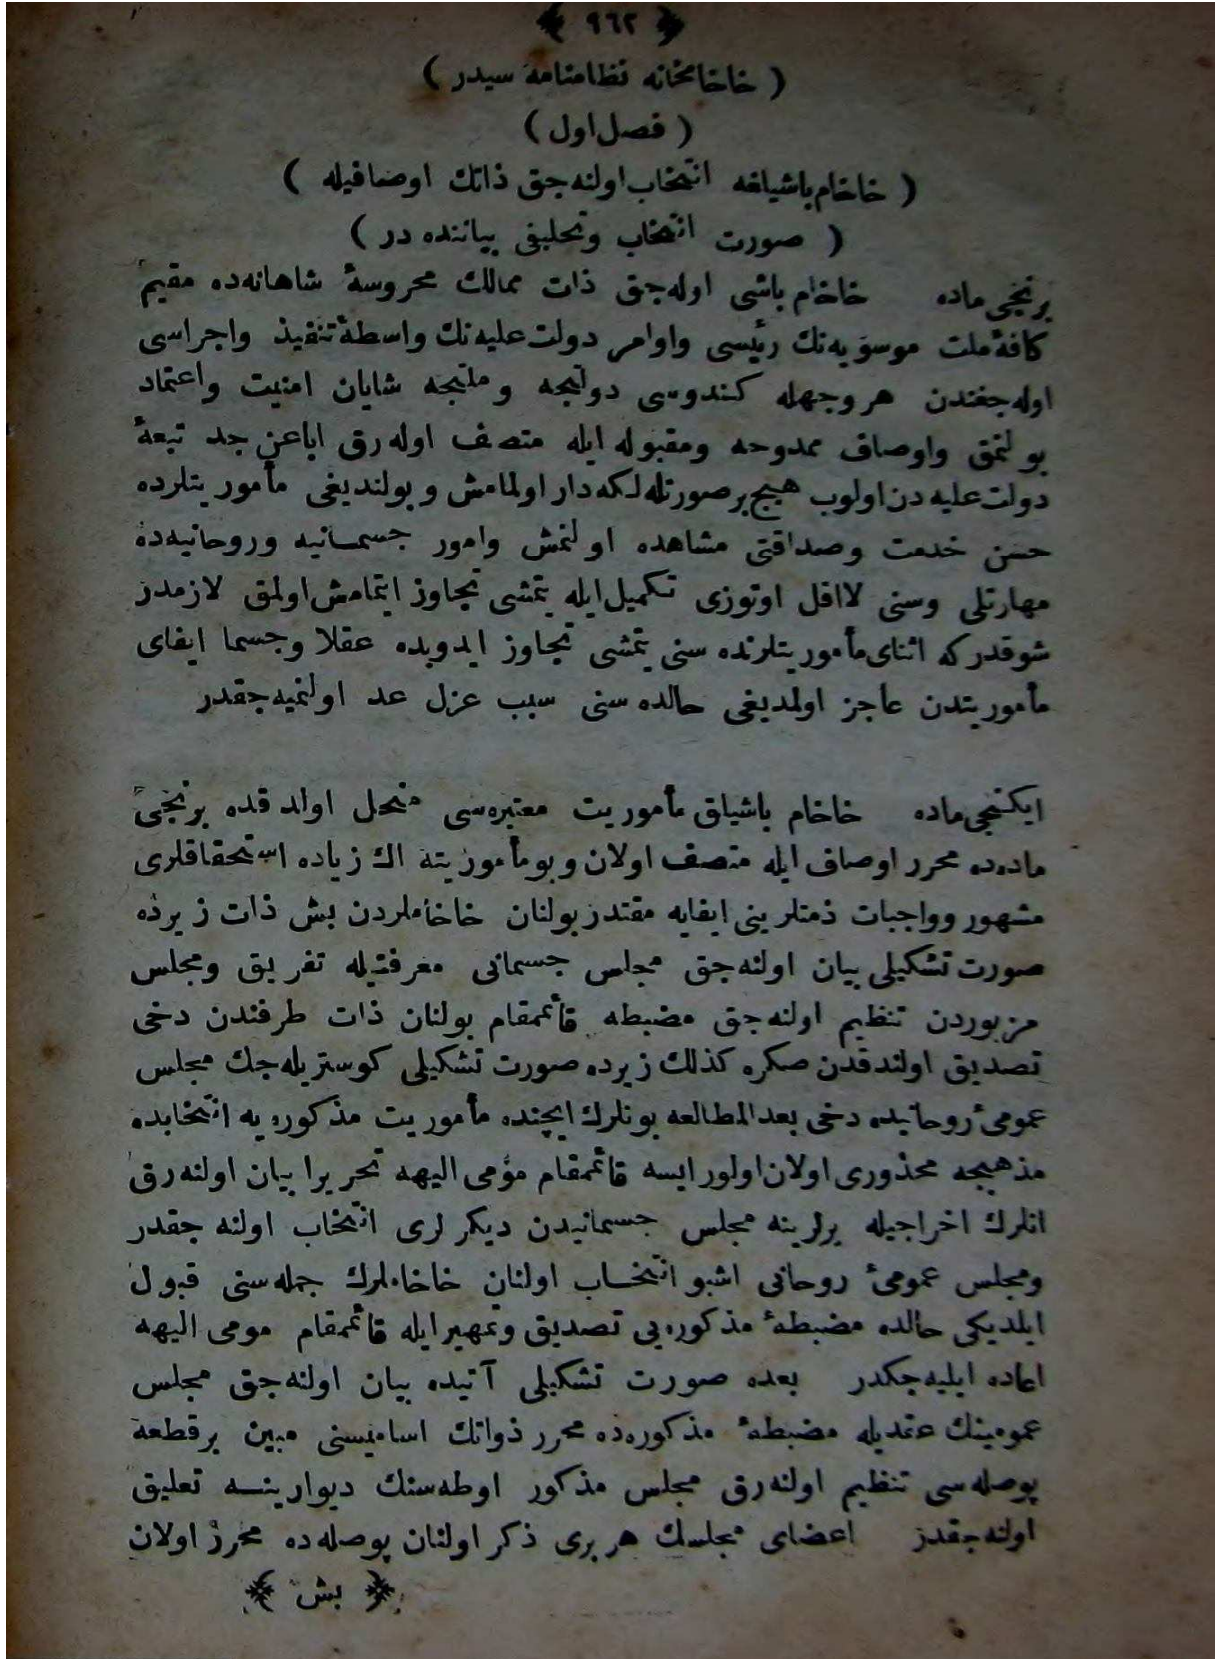 ﴿ ٩٦٢ ﴾
( خاخامخانه نظامنامه سيدر )
( فصل اول )
( خاخام باشيلغه انتخاب اولنه جق ذاتك اوصافيله )
( صورت انتخاب وتحليفى بياننده در )
برنجى ماده خاخام باشى اوله جق ذات ممالك محروسۀ شاهانه ده مقيم
كافۀ ملت موسويه نك رئيسى واوامر دولت عليه نك واسطۀ تنفيذ واجراسى
اوله جغندن هر وجهله كندوسى دولتجه و ملتجه شايان امنيت واعتماد
بولنمق واوصاف ممدوحه ومقبوله ايله متصف اوله رق اباعن جد تبعۀ
دولت عليه دن اولوب هيچ بر صورتله لكه دار اولمامش و بولنديغى مأموريتلرده
حسن خدمت وصداقتى مشاهده اولنمش وامور جسمانيه وروحانيه ده
مهارتلى وسنى لااقل اوتوزى تكميل ايله يتمشى تجاوز ايتمامش اولمق لازمدر
شوقدر كه اثناى مأموريتلرنده سنى يتمشى تجاوز ايدوبده عقلا وجسما ايفاى
مأموريتدن عاجز اولمديغى حالده سنى سبب عزل عد اولنميه جقدر
ايكنجى ماده خاخام باشيلق مأموريت معتبره سى منحل اولدقده برنجى
ماده ده محرر اوصاف ايله متصف اولان و بو مأموريته اك زياده استحقاقلرى
مشهور وواجبات ذمتلرينى ايفايه مقتدر بولنان خاخاملردن بش ذات زيرده
صورت تشكيلى بيان اولنه جق مجلس جسمانى معرفتيله تفريق ومجلس
مزبوردن تنظيم اولنه جق مضبطه قائممقام بولنان ذات طرفندن دخى
تصديق اولندقدن صكره كذلك زيرده صورت تشكيلى كوستريله جك مجلس
عمومئ روحانيده دخى بعدالمطالعه بونلرك ايچنده مأموريت مذكوره يه انتخابده
مذهبجه محذورى اولان اولور ايسه قائممقام مؤمى اليهه تحريرا بيان اولنه رق
انلرك اخراجيله يرلرينه مجلس جسمانيدن ديكرلرى انتخاب اولنه جقدر
ومجلس عمومئ روحانى اشبو انتخاب اولنان خاخاملرك جمله سنى قبول
ايلديكى حالده مضبطۀ مذكوره يى تصديق وتمهير ايله قائممقام مومى اليهه
اعاده ايليه جكدر بعده صورت تشكيلى آتيده بيان اولنه جق مجلس
عمومينك عقديله مضبطۀ مذكوره ده محرر ذواتك اساميسنى مبين بر قطعه
پوصله سى تنظيم اولنه رق مجلس مذكور اوطه سنك ديوارينه تعليق
اولنه جقدر اعضاى مجلسك هر برى ذكر اولنان پوصله ده محرر اولان
﴿ بش ﴾